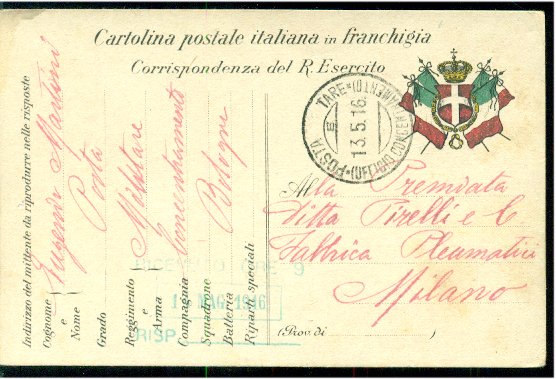 Cartolina postale italiana in franchigia
Corrispondenza del R. Esercito
POSTA MILITARE (UFFICIO CONCENTRAMENTO)
13.5.16
Indirizzo del mittente da riprodurre nelle risposte
Cognome e Nome
Eugenio
Grado
Posta
Reggimento e Arma
Militare
Compagnia
Concentramento
Squadrone
Batteria
Bologna
Riparti speciali
Alla Premiata
Ditta Pirelli e C
Fabbrica Pleumatici
Milano
(Prov. di )
ORE 9
MAG 1916
RISP